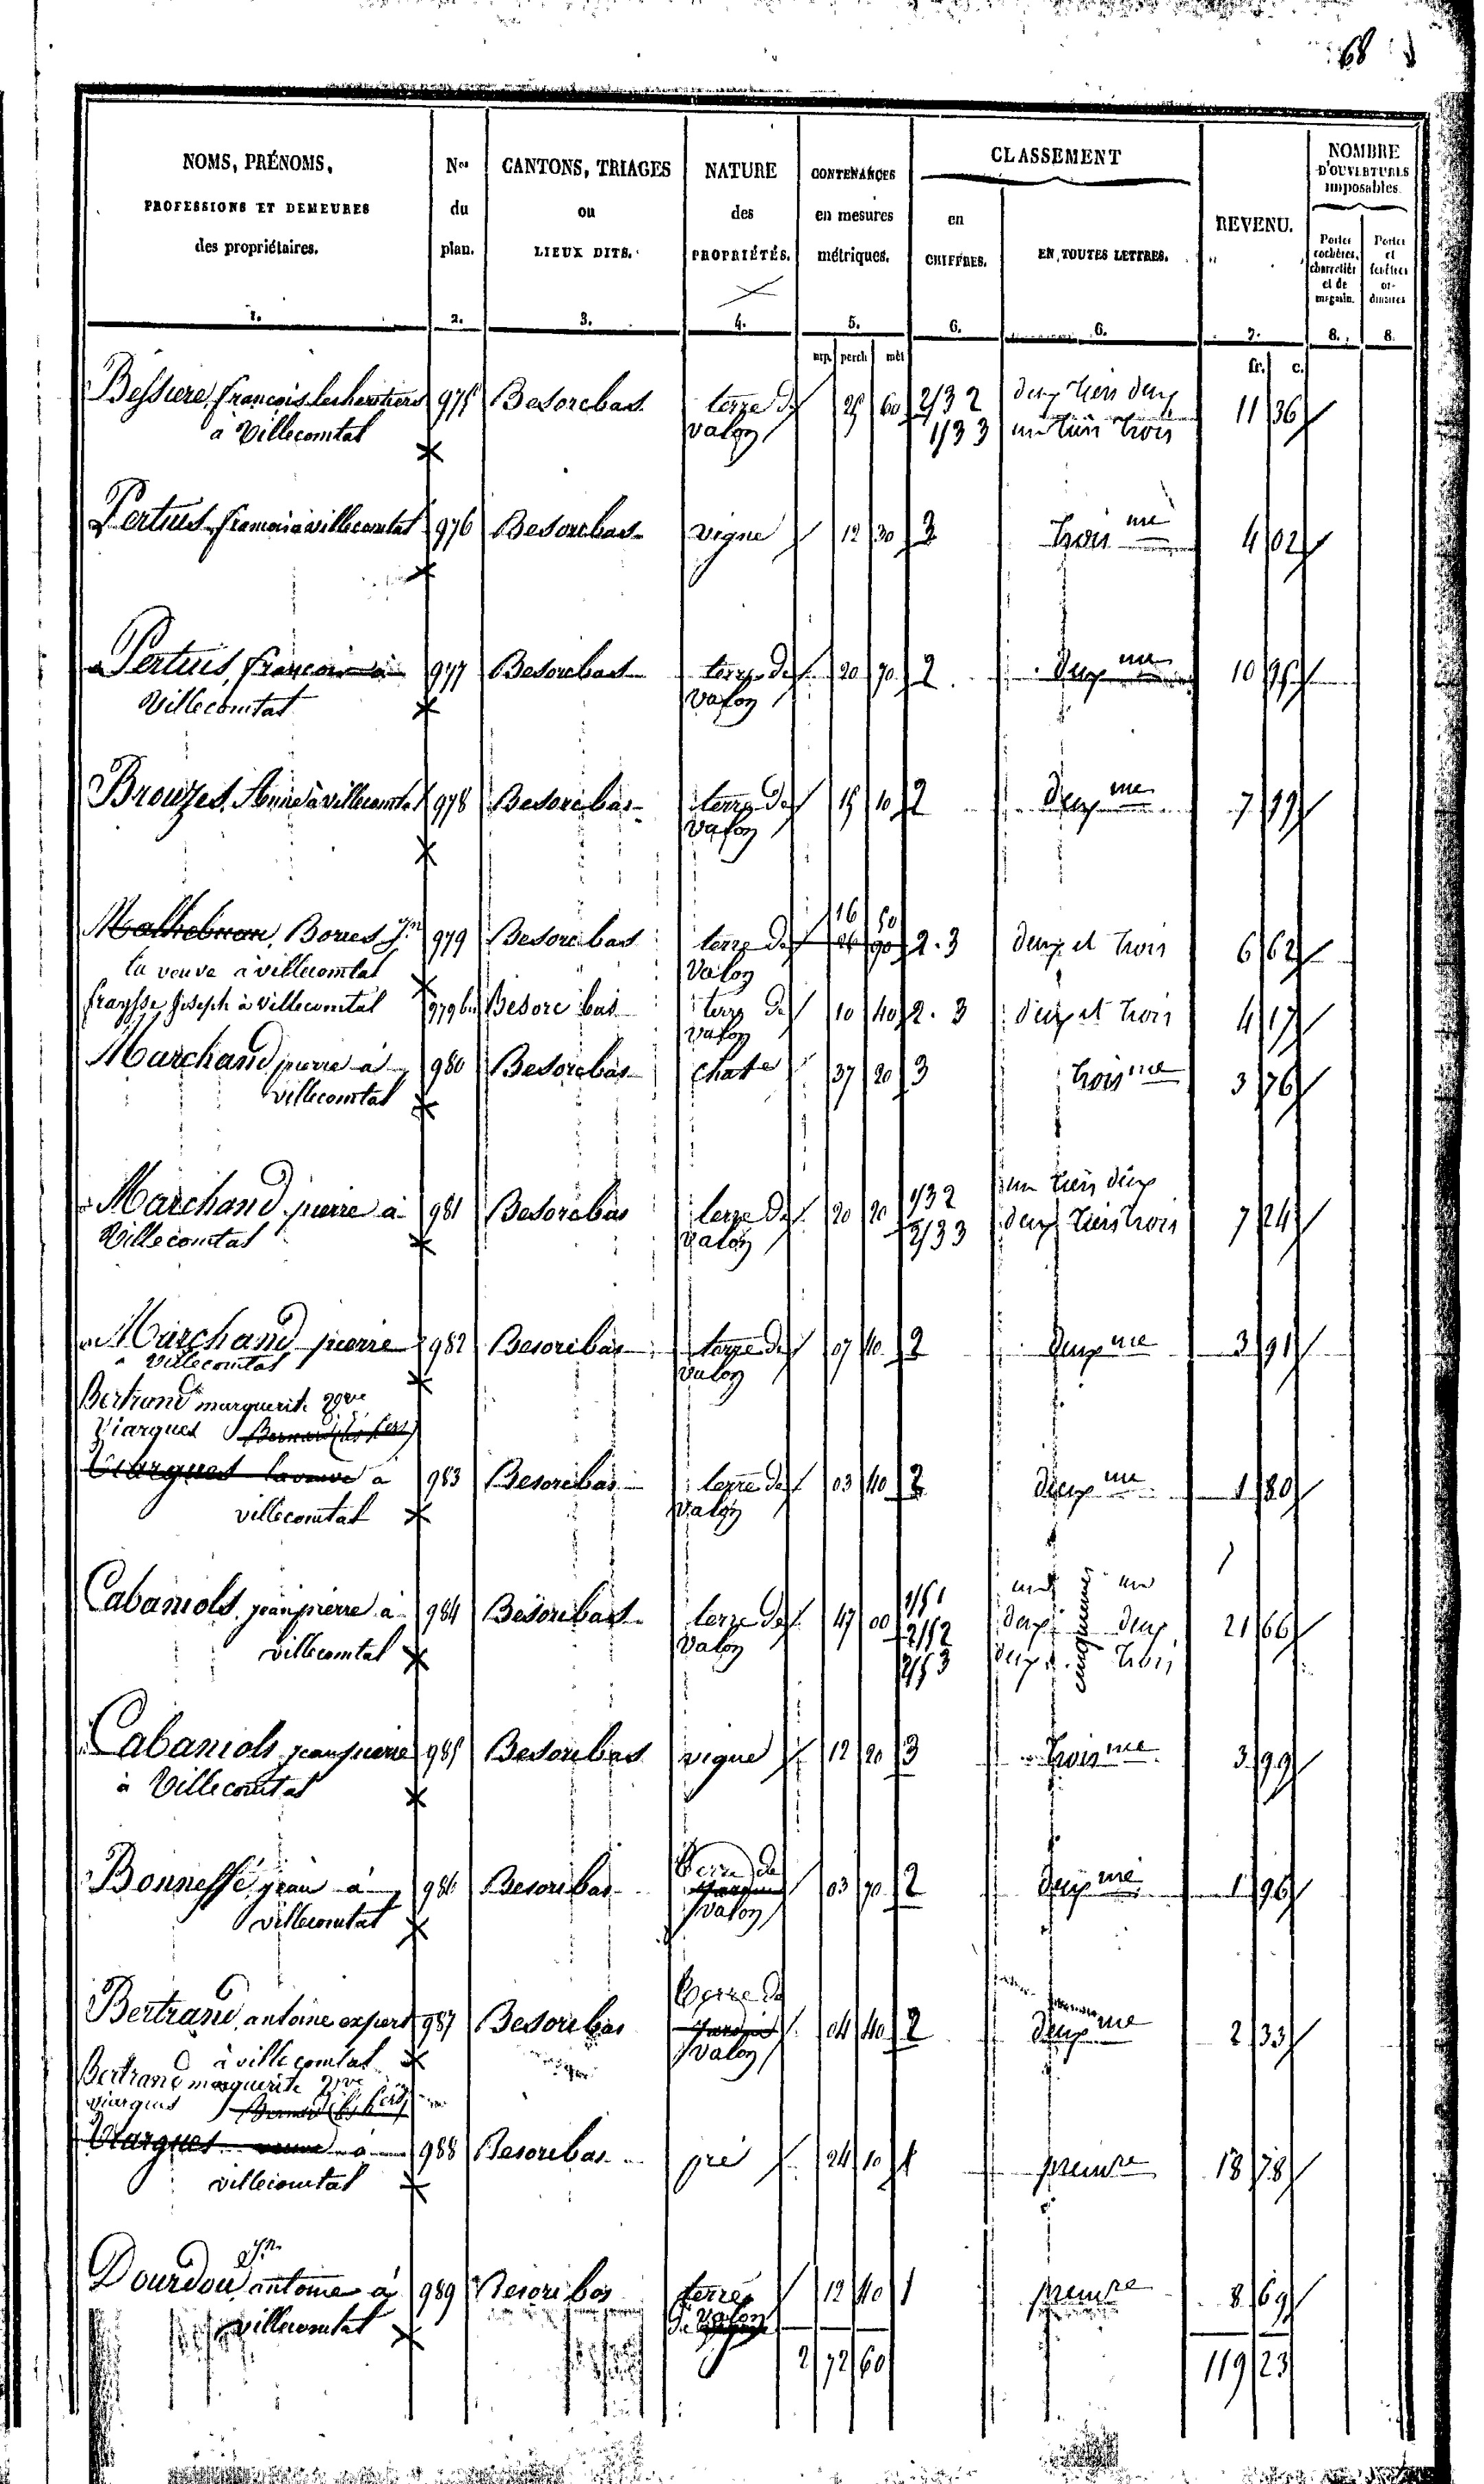 68
NOMS, PRÉNOMS,
PROFESSIONS ET DEMEURES
des propriétaires.
1.
Nos
du
plan.
2.
CANTONS, TRIAGES
ou
LIEUX DITS.
3.
NATURE
des
PROPRIÉTÉS.
4.
CONTENANCES
en mesures
métriques.
5.
CLASSEMENT
en
CHIFFRES.
6.
EN TOUTES LETTRES.
6.
REVENU.
7.
NOMBRE
D'OUVERTURES
imposables.
Portes
cochères,
charretières
et de
magasin.
8.
Portes
et
fenêtres
or-
dinaires
8.
arp. perch mèt
fr. c.
Bessiere, françois les heritiers 975 Besorebas terre de 25 60 2/3 2 deux tiers deux 11 36
à Villecomtal valon 1/3 3 un tiers trois
Pertuis françois à villecomtal 976 Besorebas vigne 12 30 3 trois me 4 02
Pertuis, françois à 977 Besorebas terre de 20 70 2 deux me 10 95
Villecomtal valon
Brouzes, à villecomtal 978 Besorebas terre de 15 10 2 deux me 7 99
valon
16 50
Bories Jn 979 Besorebas terre de 26 90 2.3 deux et trois 6 62
la veuve à villecomtal valon
fraysse Joseph à villecomtal 979 bis Besore bas terre de 10 40 2.3 deux et trois 4 17
valon
Marchand pierre à 980 Besorebas chate 37 20 3 trois me 3 76
villecomtal
Marchand pierre à 981 Besorebas terre de 20 20 1/3 2 un tiers deux 7 24
Villecomtal valon 2/3 3 deux tiers trois
Marchand pierre 982 Besorebas terre de 07 40 2 deux me 3 91
à villecomtal valon
Bertrand marguerite vve
Viargues Bernard (les hers)
Viargues la veuve à 983 Besorebas terre de 03 40 2 deux me 1 80
villecomtal valon
Cabaniols, jean pierre à 984 Besorebas terre de 47 00 1/5 1 un cinquiemes un 21 66
villecomtal valon 2/5 2 deux deux
2/5 3 deux trois
Cabaniols jean pierre 985 Besorebas vigne 12 20 3 trois me 3 99
à Villecomtal
Bonneffé jean à 986 Besorebas terre de 03 70 2 deux me 1 96
villecomtal valon
Bertrand, antoine expert 987 Besorebas terre de jardin 04 40 2 deux me 2 33
à villecomtal valon
Bertrand marguerite vve
viargues Bernard (les hers)
Viargues veuve à 988 Besorebas pré 24 10 1 premre 18 78
villecomtal
Jn
Dourdou, antoine à 989 Besorebas terre 12 40 1 premre 8 69
villecomtal de valon
2 72 60 119 23